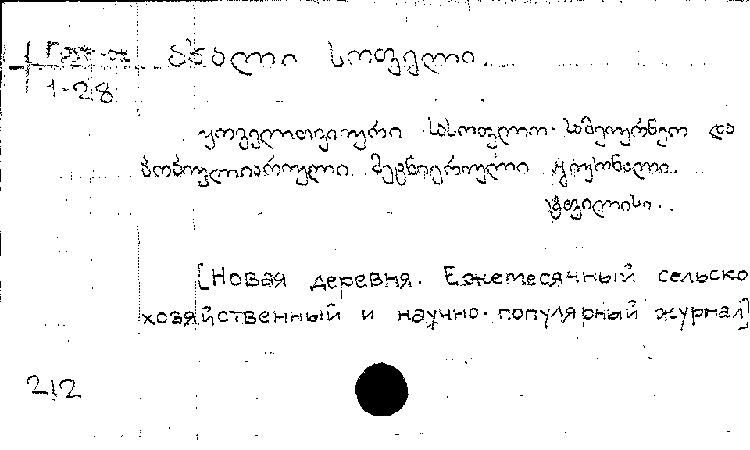 ახალი სოფელი.
1-28
ყოველთვიური სასოფლო-სამეურნეო და
პოპულიარული მეცნიერული ჟურნალი.
ტფილისი.
[Новая деревня. Ежемесячный сельско
хозяйственный и научно-популярный журнал]
212